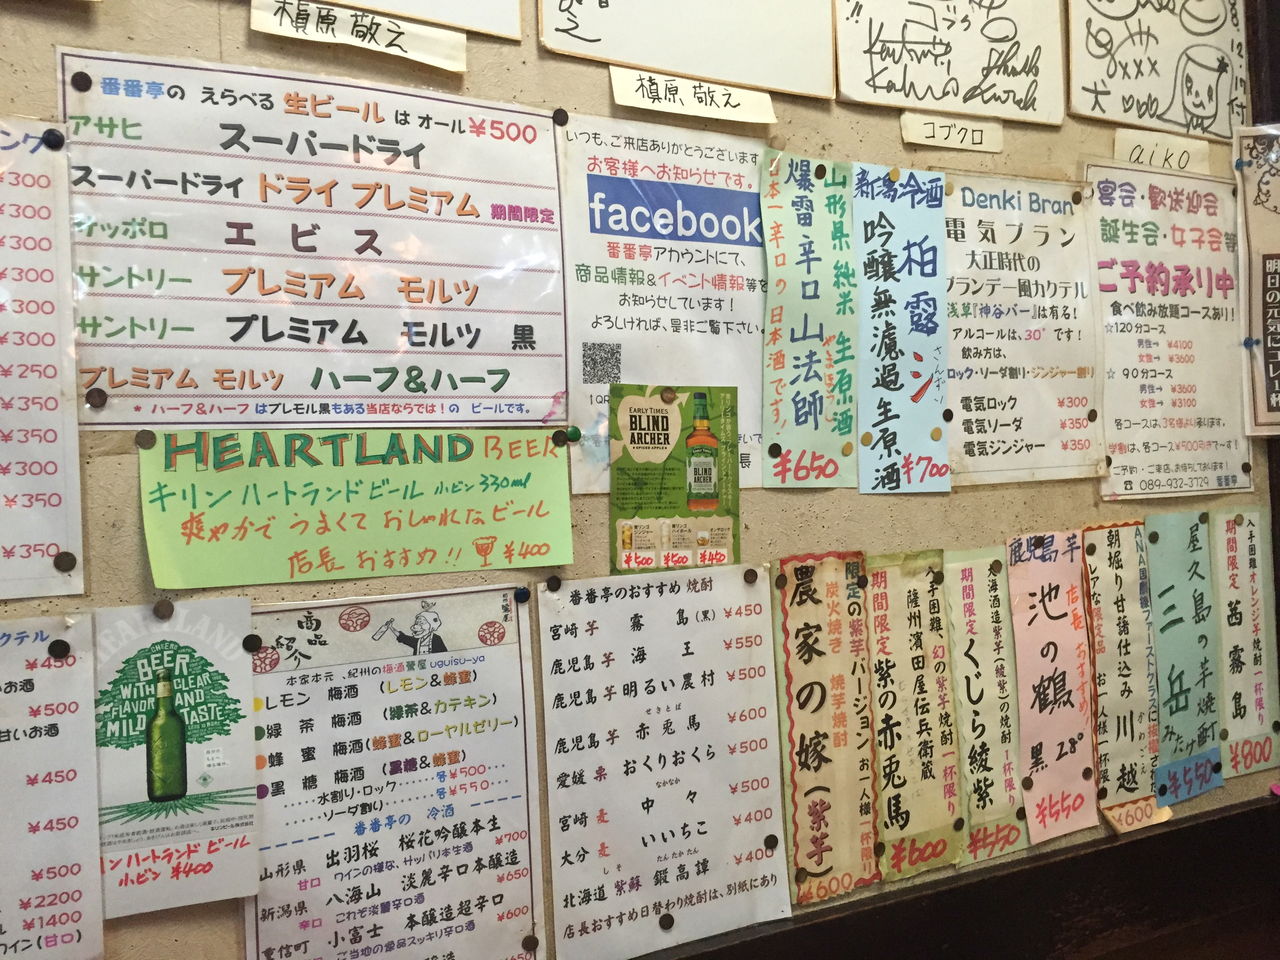 槇原 敬之
槇原 敬之
コブクロ
aiko
番番亭の えらべる 生ビール は オール¥500
アサヒ スーパードライ
スーパードライ ドライ プレミアム 期間限定
サッポロ エビス
サントリー プレミアム モルツ
サントリー プレミアム モルツ 黒
プレミアム モルツ ハーフ&ハーフ
* ハーフ&ハーフ はプレモル黒もある当店ならでは!の ビールです。
¥300
¥300
¥300
¥300
¥300
¥300
¥250
¥350
¥350
¥300
¥350
¥350
HEARTLAND BEER
キリン ハートランドビール 小ビン 330ml
爽やかで うまくて おしゃれなビール
店長 おすすめ!! ¥400
いつも、ご来店ありがとうございます
お客様へお知らせです。
facebook
番番亭アカウントにて、
商品情報&イベント情報等を
お知らせしています!
よろしければ、是非ご覧下さい。
EARLY TIMES
BLIND
ARCHER
¥500 ¥500 ¥450
山形県 純米 生原酒
爆雷辛口 山法師
日本一辛口の日本酒です!
¥650
新潟冷酒
柏露
吟醸無濾過生原酒
¥700
Denki Bran
電気ブラン
大正時代の
ブランデー風カクテル
浅草『神谷バー』は有名!
アルコールは、30°です!
飲み方は、
ロック・ソーダ割り・ジンジャー割り
電気ロック ¥300
電気ソーダ ¥350
電気ジンジャー ¥350
宴会・歓送迎会
誕生会・女子会等
ご予約承り中
食べ飲み放題コースあり!
☆120分コース
男性→ ¥4100
女性→ ¥3600
☆ 90分コース
男性→ ¥3600
女性→ ¥3100
各コースは、3名様より承ります。
学割は、各コース¥500引きで〜す!
ご予約・ご来店、お待ちしております!
☎ 089-932-3729 番番亭
カクテル
¥450
¥500
甘いお酒
¥450
¥450
¥500
¥2200
¥1400
ワイン(甘口)
HEARTLAND
CHEERS WITH
BEER
WITH CLEAR
FLAVOR AND
MILD TASTE
キリンビール株式会社
ハートランド ビール
小ビン ¥400
商品紹介
本家本元、紀州の梅酒 鶯屋 uguisu-ya
レモン 梅酒 (レモン&蜂蜜)
緑 茶 梅酒 (緑茶&カテキン)
蜂 蜜 梅酒 (蜂蜜&ローヤルゼリー)
黒 糖 梅酒 (黒糖&蜂蜜)
……水割り・ロック……各¥500…
……ソーダ割り………各¥550…
番番亭の 冷酒
山形県 出羽桜 桜花吟醸本生 ¥700
甘口 ワインの様な、サッパリ本生酒
新潟県 八海山 淡麗辛口本醸造 ¥650
辛口 これぞ淡麗辛口酒
重信町 小富士 本醸造超辛口 ¥600
ご当地の単品スッキリ辛口酒
¥650
番番亭のおすすめ 焼酎
宮崎 芋 霧 島 (黒) ¥450
鹿児島 芋 海 王 ¥550
鹿児島 芋 明るい農村 ¥500
せきとば
鹿児島 芋 赤兎馬 ¥600
愛媛 栗 おくりおくら ¥500
なかなか
宮崎 麦 中 々 ¥500
大分 麦 いいちこ ¥400
しそ たんたかたん
北海道 紫蘇 鍛高譚 ¥400
店長おすすめ日替わり焼酎は、別紙にあり
限定の紫芋バージョン お一人様一杯限り
炭火焼き 焼芋焼酎
農家の嫁(紫芋)
¥600
入手困難、幻の紫芋焼酎 一杯限り
薩州濱田屋伝兵衛蔵
期間限定 紫の赤兎馬
¥600
大海酒造 紫芋(綾紫)の焼酎 1一杯限り
期間限定 くじら綾紫
¥550
鹿児島 芋 店長おすすめ!
池の鶴 黒 28°
¥550
ANA国際線ファーストクラスに抜擢された
朝堀り甘藷仕込み 川越
レアな限定品 お一人様一杯限り
¥600
屋久島の芋焼酎
三岳
みたけ
¥550
入手困難 オレンジ芋焼酎 一杯限り
期間限定 茜霧島
¥800
明日の元気にエレ一杯